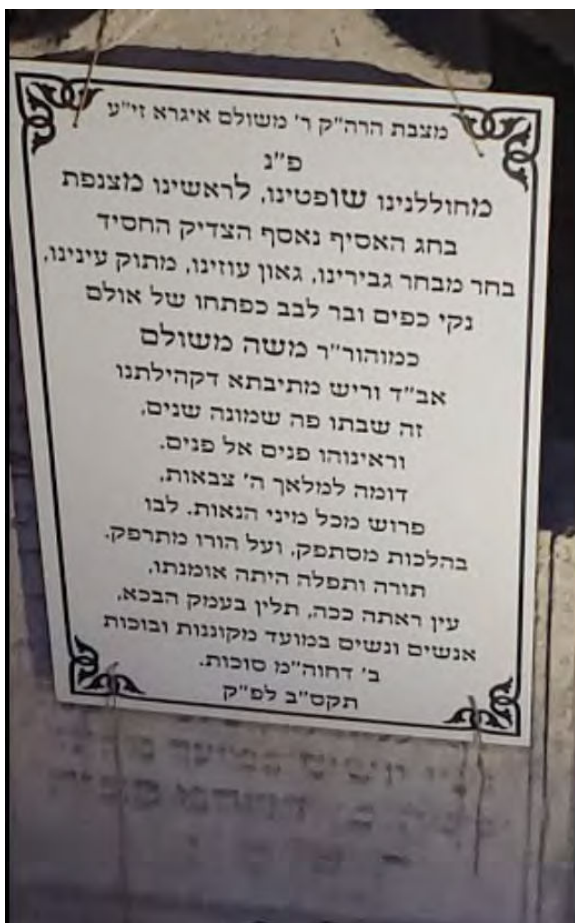 מצבת הרה"ק ר' משולם איגרא זי"ע
פ"נ
מחוללנינו שופטינו, לראשינו מצנפת
בחג האסיף נאסף הצדיק החסיד
בחר מבחר גבירינו, גאון עוזינו, מתוק עינינו,
נקי כפים ובר לבב כפתחו של אולם
כמוהור"ר משה משולם
אב"ד וריש מתיבתא דקהילתנו
זה שבתו פה שמונה שנים,
וראינוהו פנים אל פנים.
דומה למלאך ה' צבאות,
פרוש מכל מיני הנאות. לבו
בהלכות מסתפק, ועל הורו מתרפק.
תורה ותפלה היתה אומנתו,
עין ראתה ככה, תלין בעמק הבכא,
אנשים ונשים במועד מקוננות ובוכות
ב' דחוה"מ סוכות.
תקס"ב לפ"ק